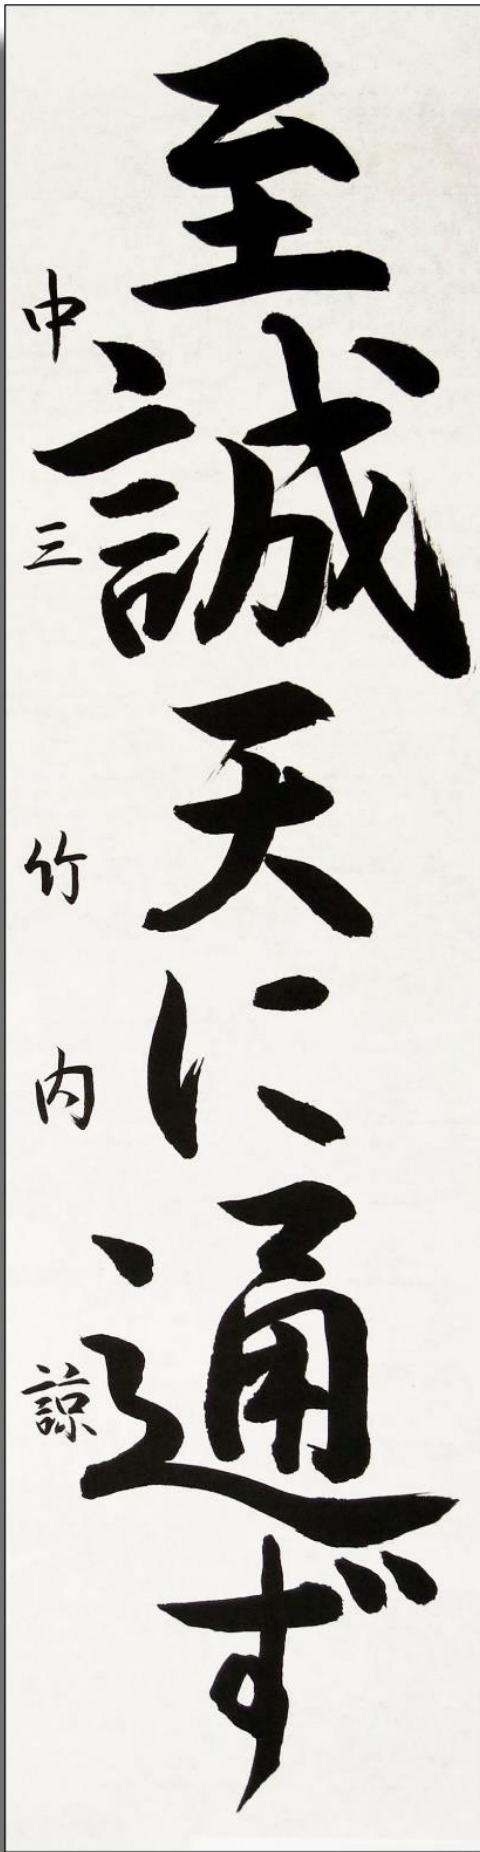 至誠天に通ず
中三 竹内 諒